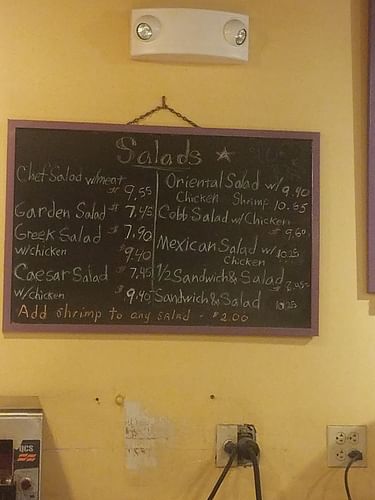 Salads
Chef Salad w/meat
$ 9.55
Garden Salad $ 7.45
Greek Salad $ 7.90
w/chicken $ 9.40
Caesar Salad $ 7.45
w/chicken $ 9.40
Oriental Salad w/ 9.90
Chicken Shrimp 10.65
Cobb Salad w/Chicken
$ 9.60
Mexican Salad w/ 10.25
Chicken
1/2 Sandwich & Salad
Sandwich & Salad 10.25
Add shrimp to any salad - $2.00
QCS